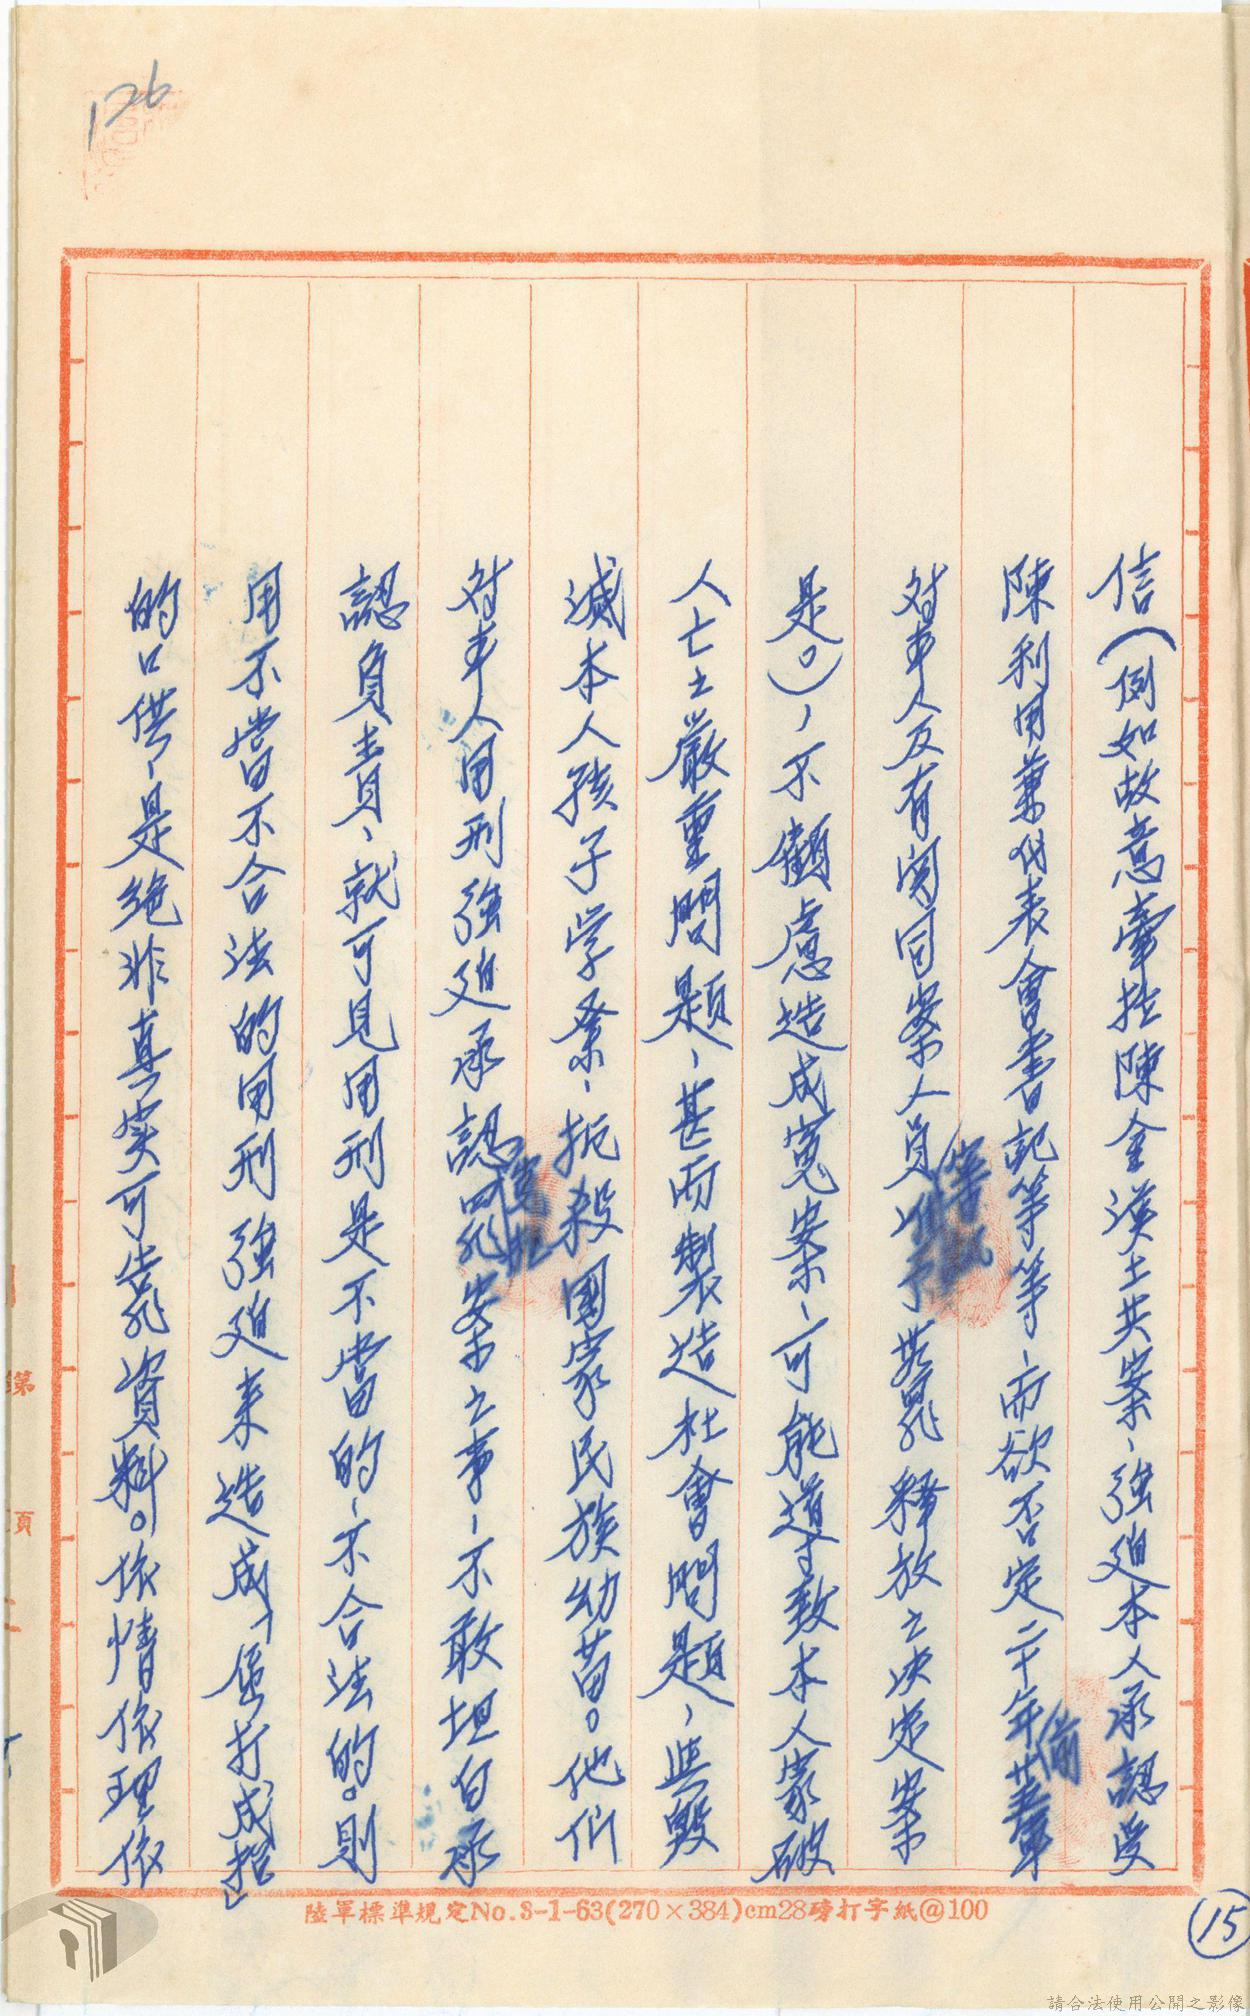 126
信(例如故意牽扯陳金漢土共案、強迫本人承認受
陳利用兼代表會書記等等、而欲否定二十年前
對本人及有関同案人員等 無罪釋放之決定案
是。)、不顧慮造成冤案、可能導致本人家破
人亡之嚴重問題、甚而製造社會問題、與毀
滅本人孩子学業、扼殺國家民族幼苗。他们
対本人用刑強迫承認罪案之事、不敢坦白承
認負責、就可見用刑是不當的、不合法的。則
用不當不合法的用刑強迫来造成、屈打成招
的口供、是绝非真实可靠資料。依情依理依
陸軍標準規定No.S-1-63(270×384)cm28磅打字紙@100
15
第
頁
請合法使用公開之影像